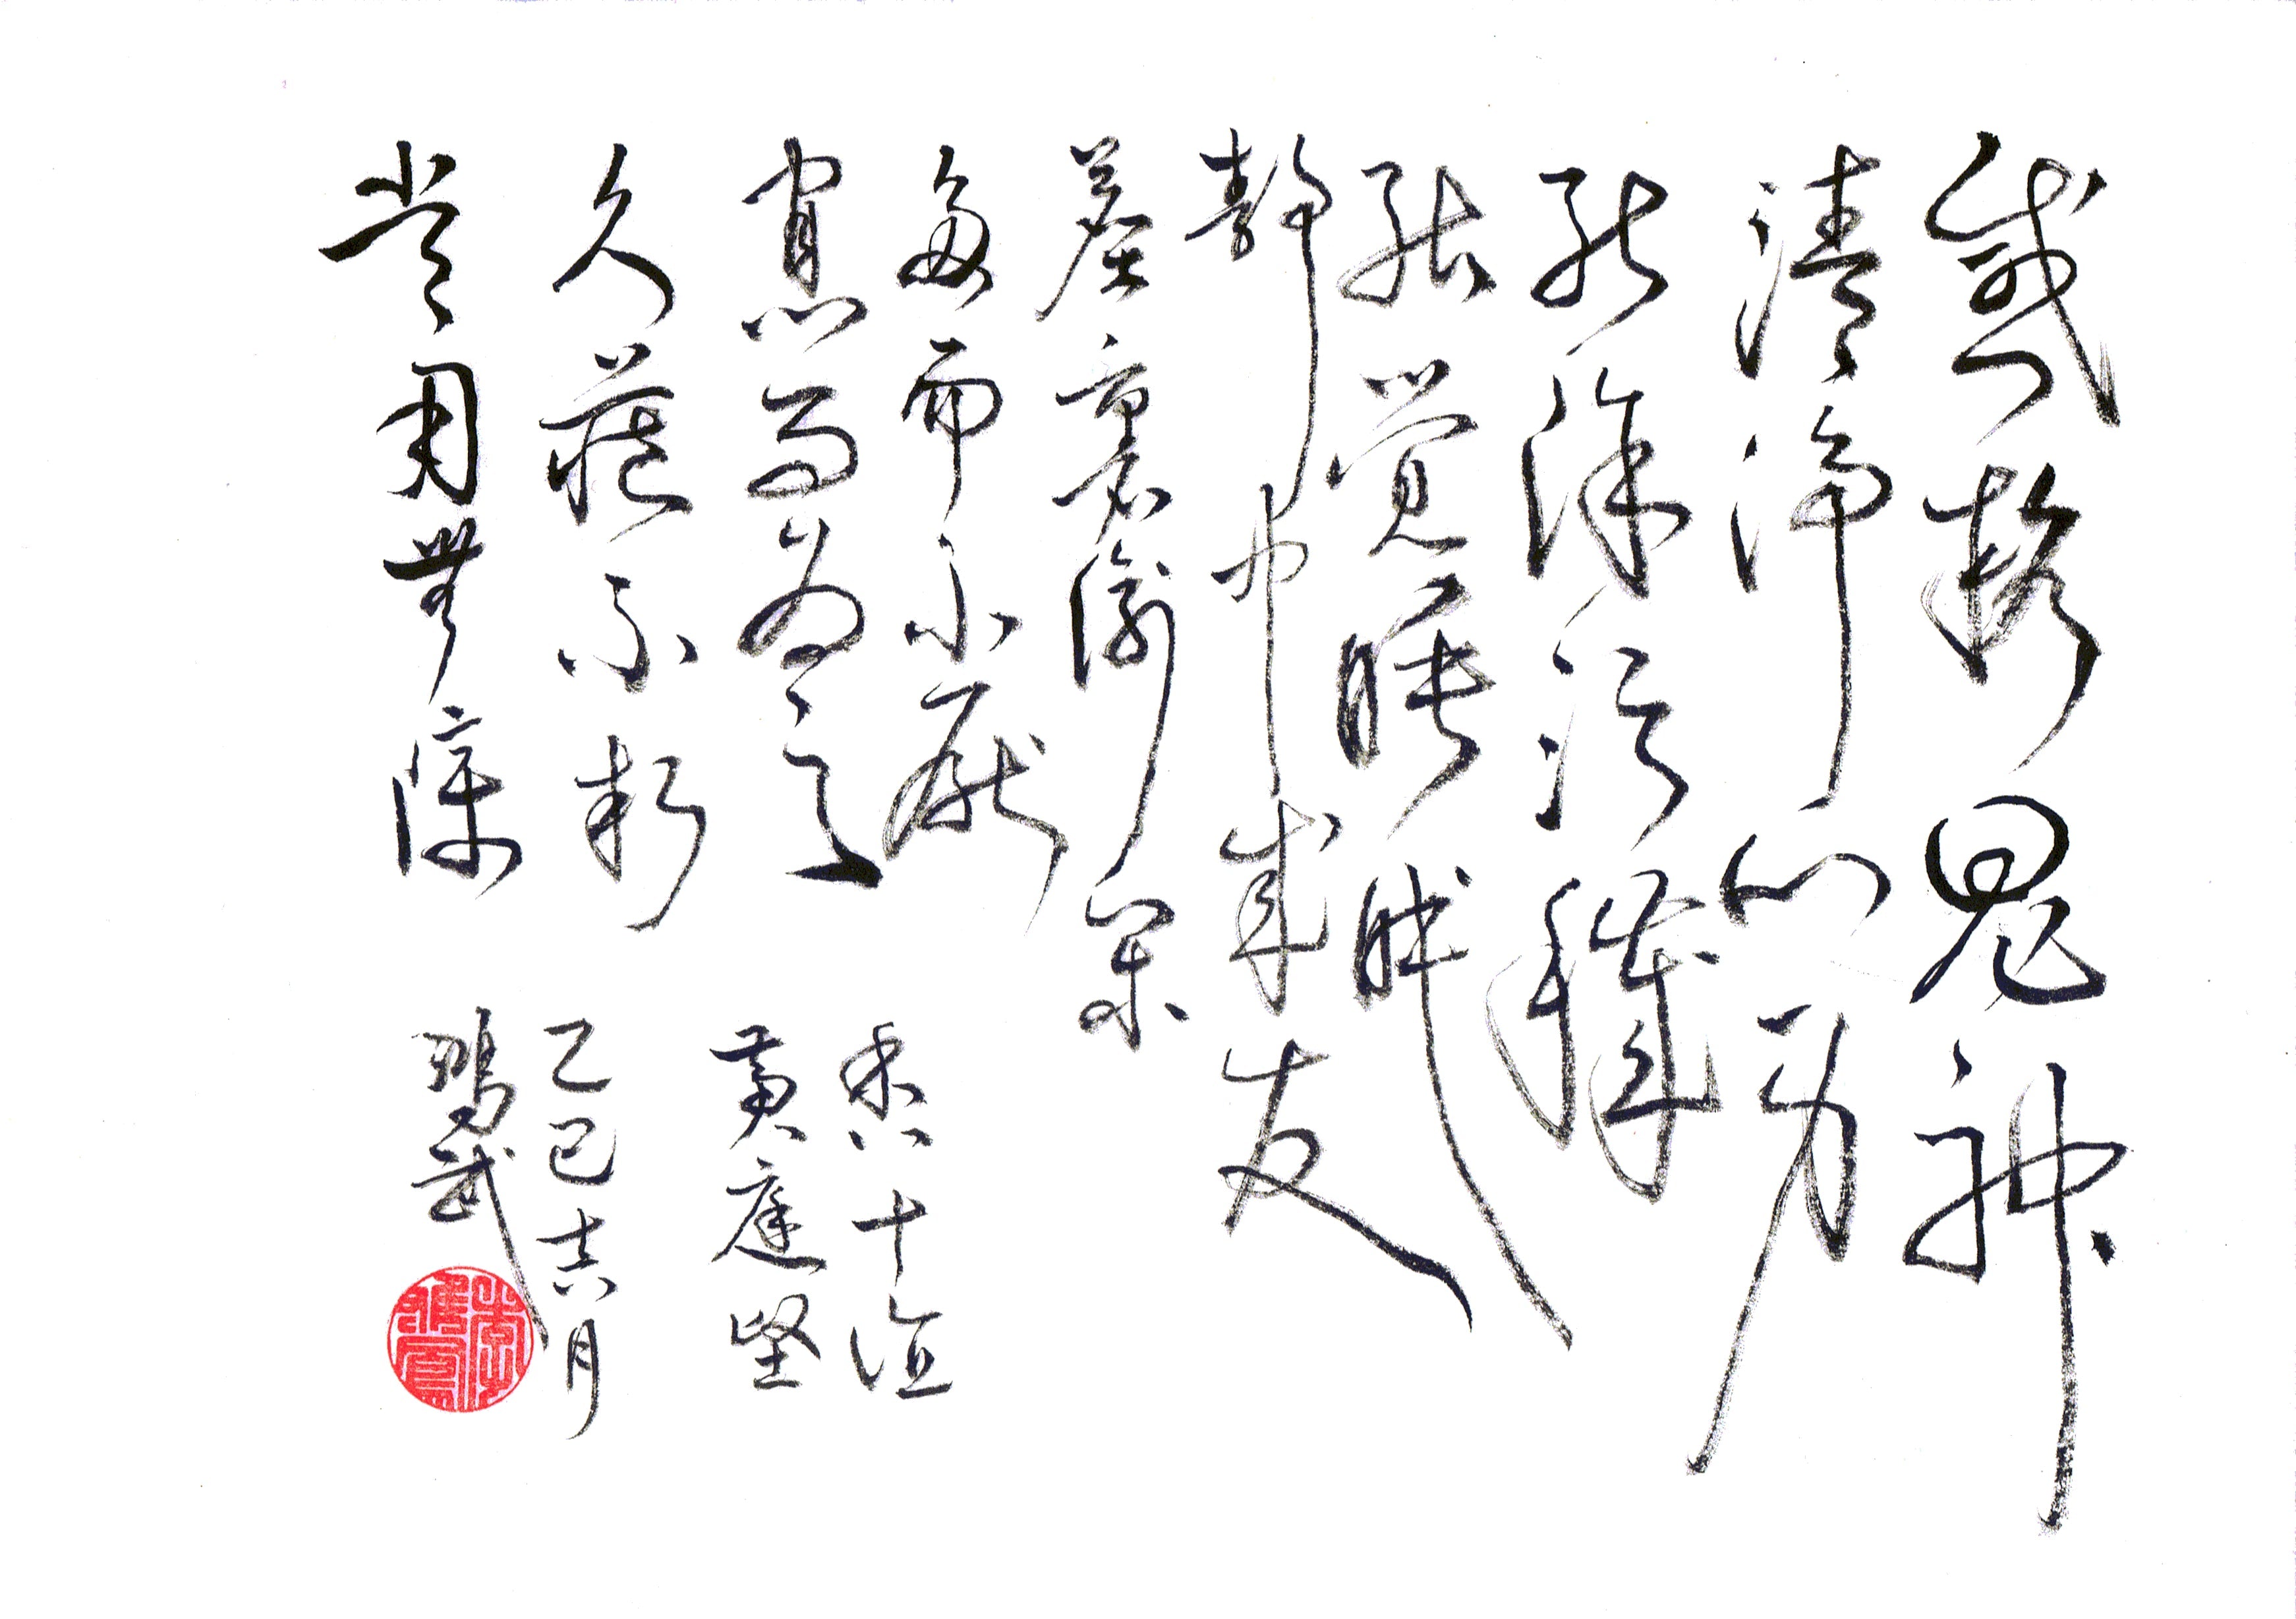 感格鬼神
清淨心身
能除污穢
能覺睡眠
静中成友
塵裏偷閑
多而不厭
寡而為足
久藏不朽
常用無障
香十德
黃庭堅
乙巳吉月
鴻武